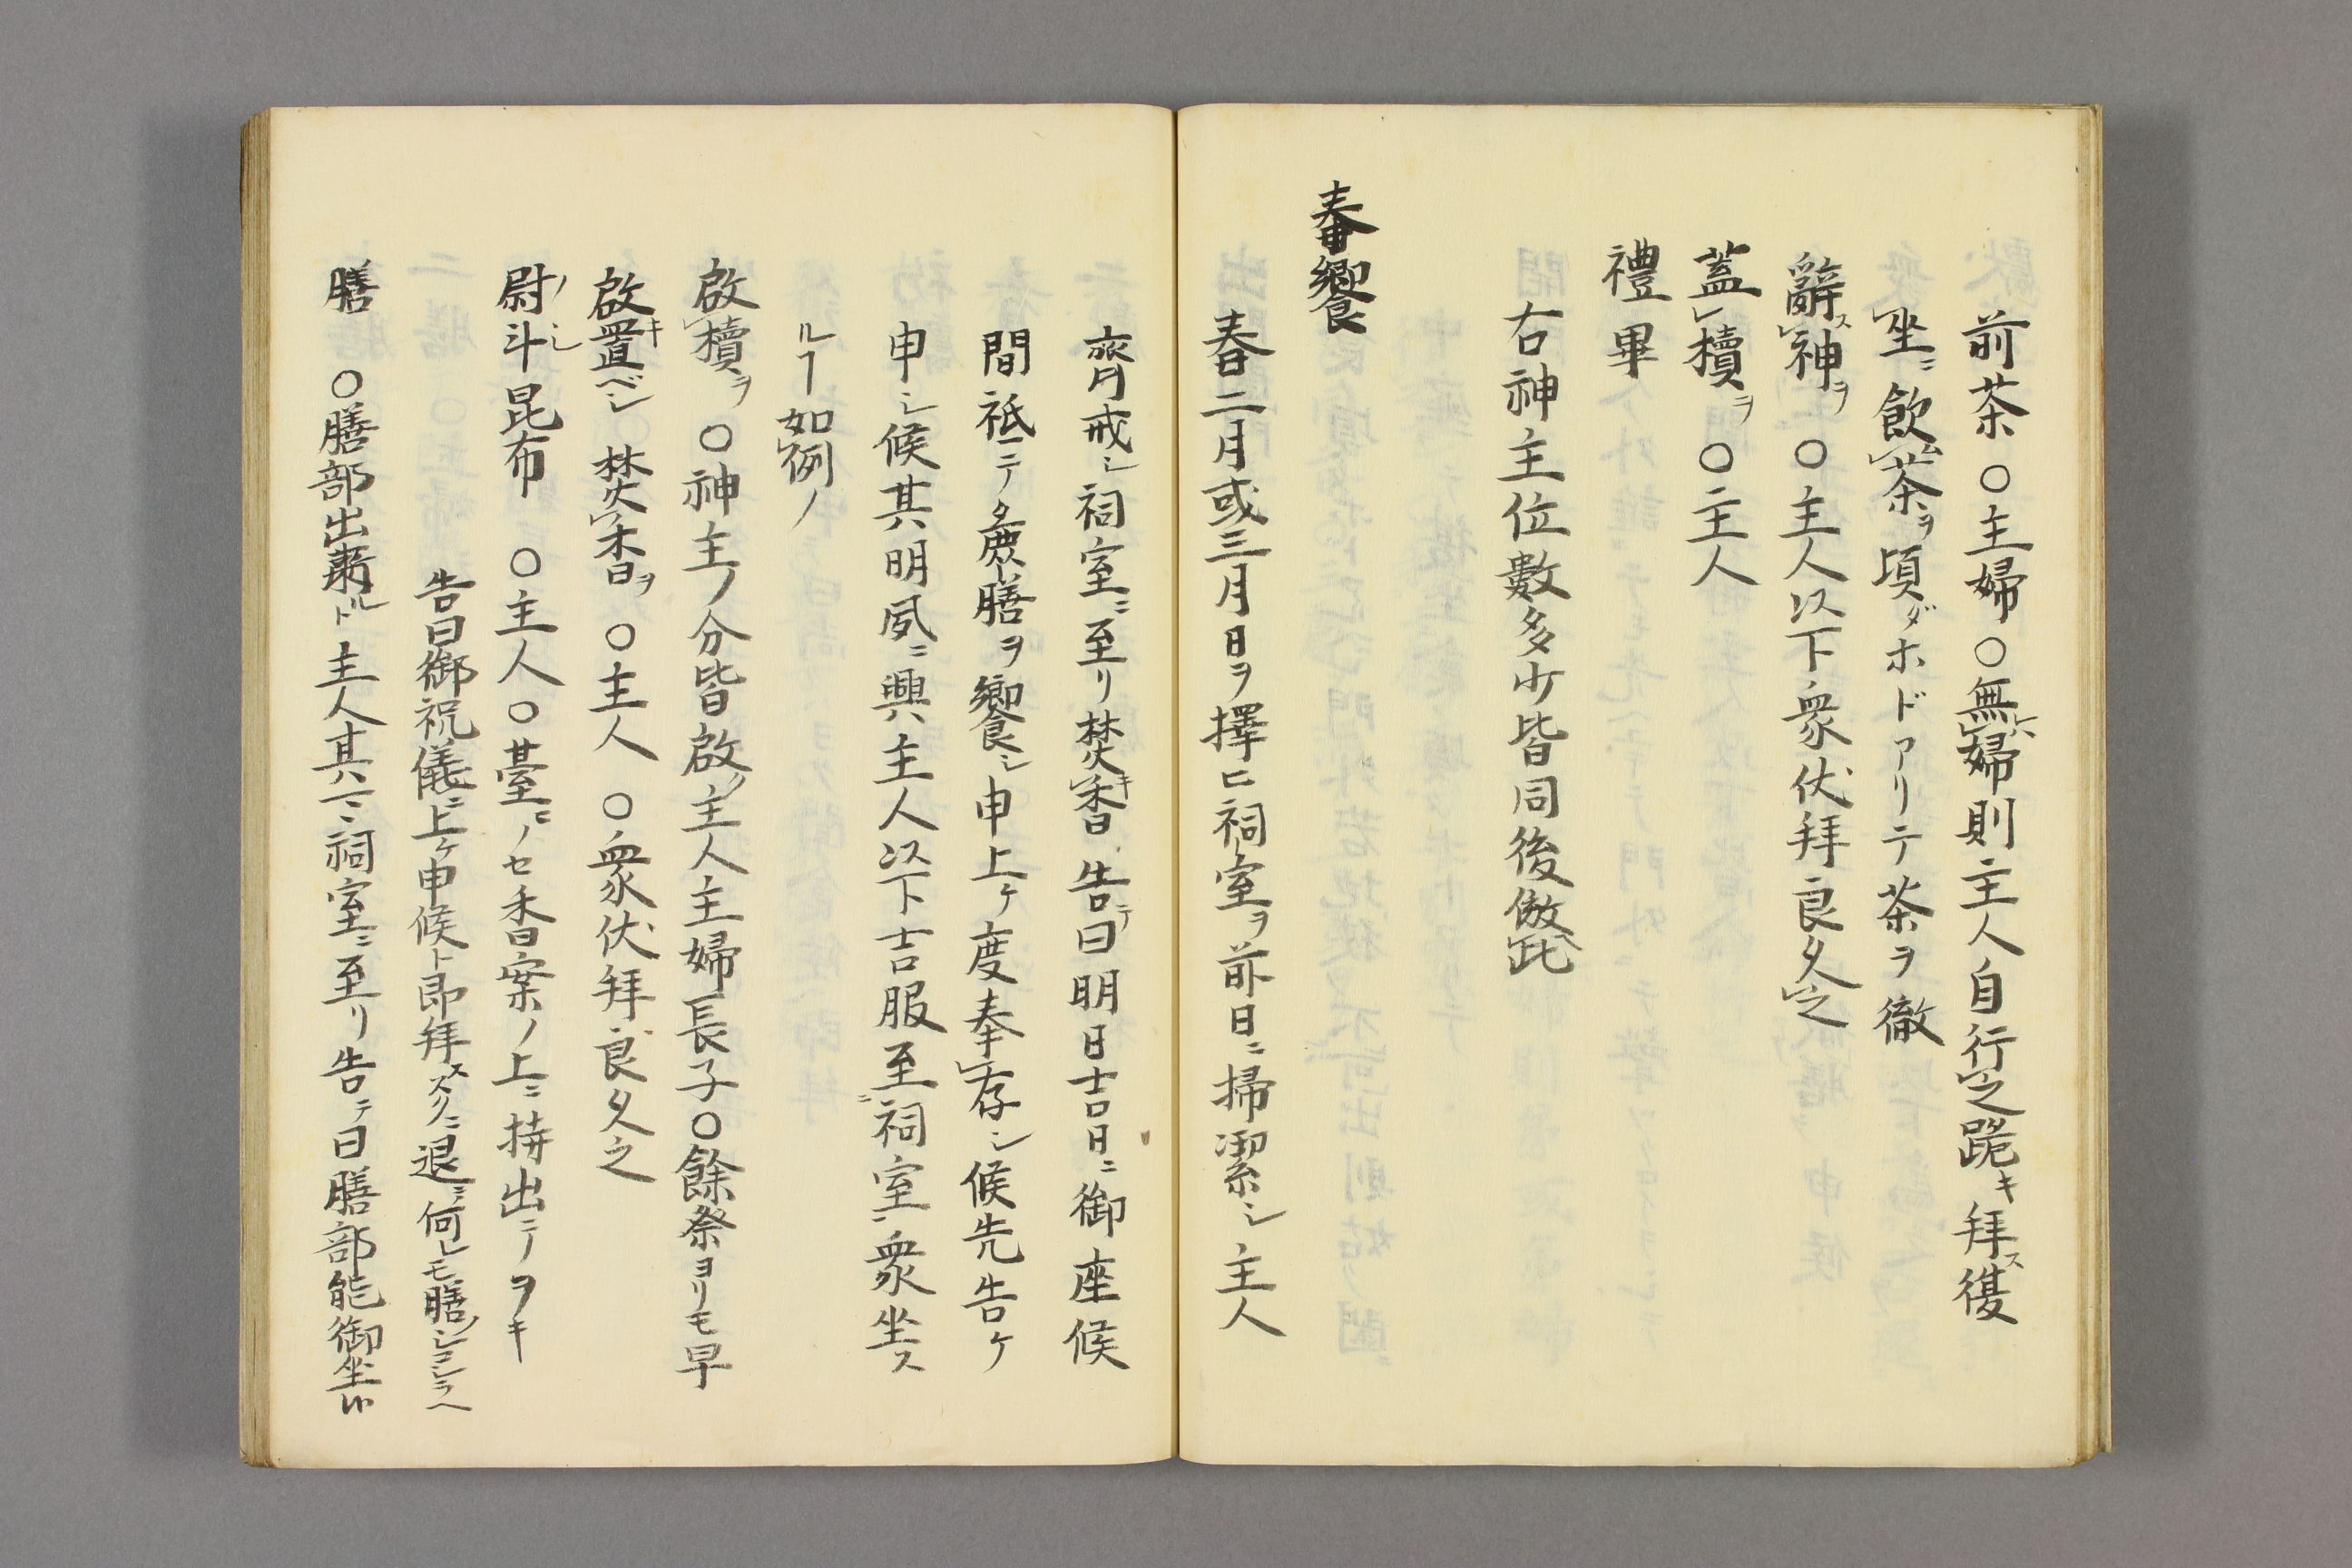 前茶 ○主婦 ○無婦則主人自行之跪キ拝ス復
坐ニ飲茶ヲ頃ダホドアリテ茶ヲ徹
辭ス神ヲ ○主人以下衆伏拝良久之
蓋櫝ヲ ○主人
禮畢
右神主位數多少皆同後倣此
春饗
春二月或三月日ヲ擇ヒ祠室ヲ前日ニ掃潔シ主人
齊戒シ祠室ニ至リ焚キ香告テ曰明日吉日ニ御座候
間祗テ麁膳ヲ饗シ申上ケ度奉存シ候先告ケ
申シ候其明夙ニ興ハ主人以下吉服至ニ祠室ニ衆坐ス
ルヿ如例ノ
啟櫝ヲ ○神主ノ分皆啟ノ主人主婦長子○餘祭ヨリモ早
啟キ置ベシ 焚香ヲ ○主人 ○衆伏拝良久之
尉斗昆布 ○主人○臺ニノセ香案ノ上ニ持出テヲキ
告曰御祝儀ニ上ケ申候ト即拝ス次ニ退ニ何レモ膳ノシコシラヘ
膳 ○膳部出来ルト主人其ハニ祠室ニ至リ告テ曰膳部能御坐候